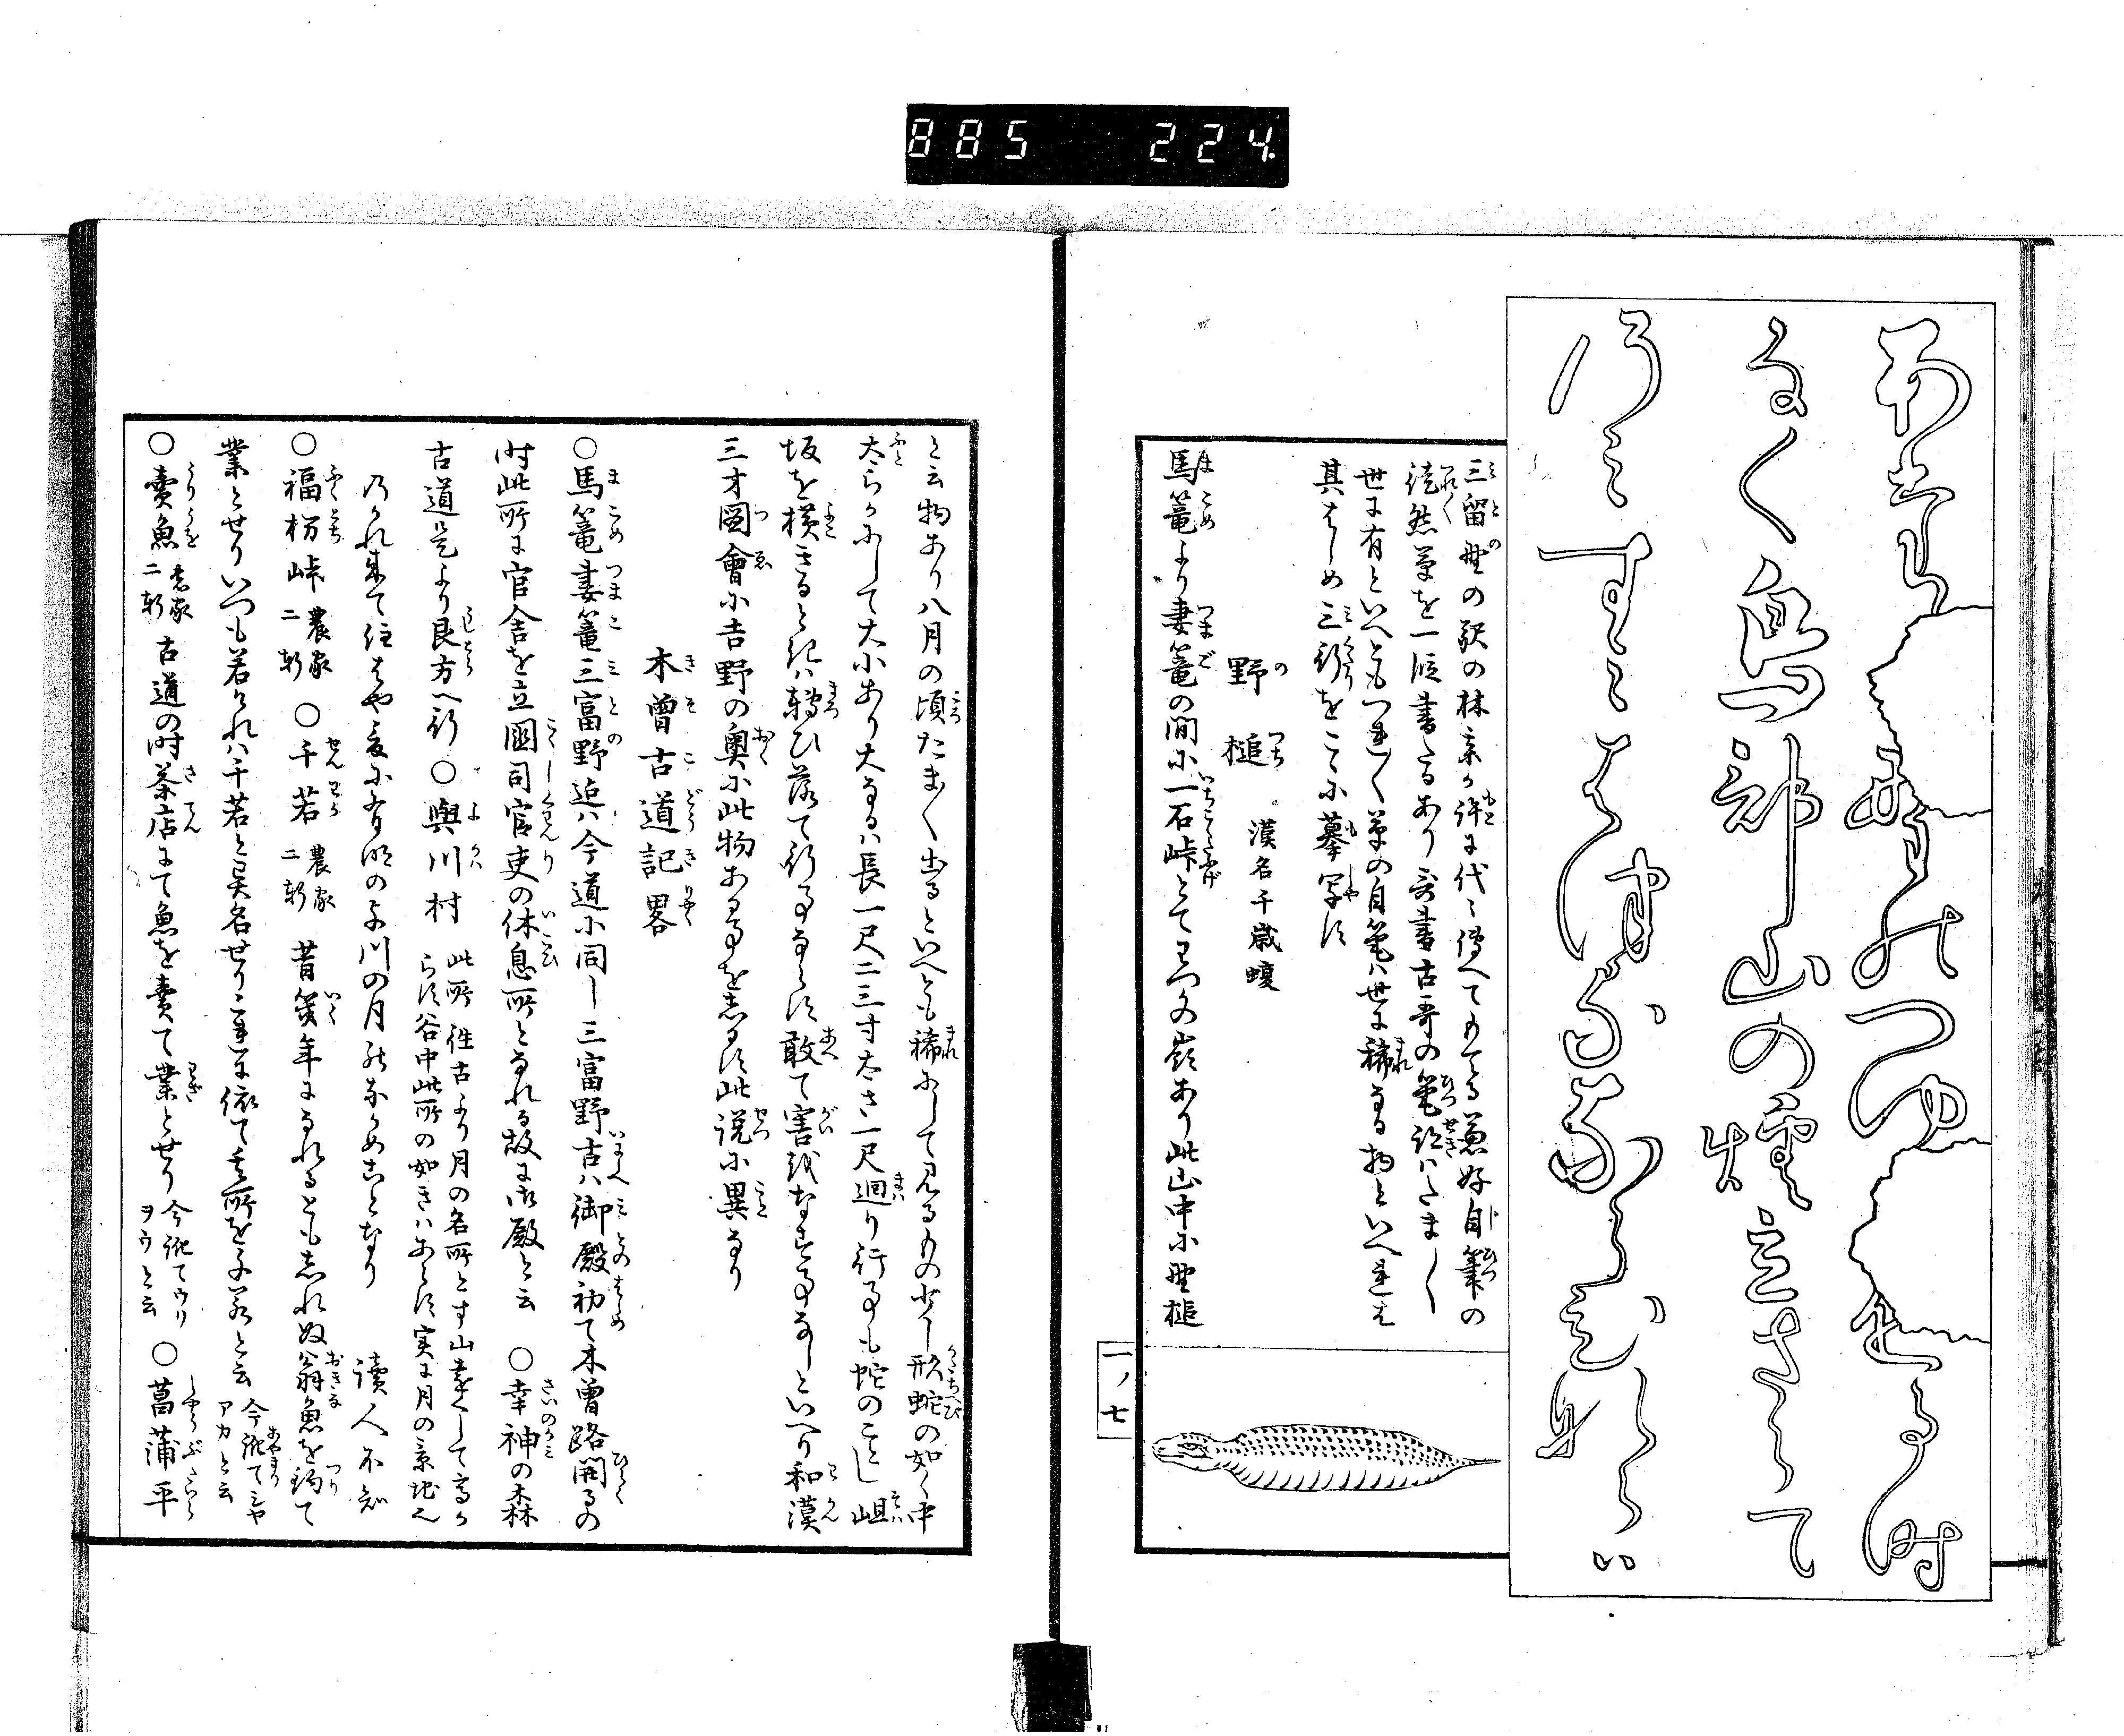 885 224.
あだし野の つゆきゆる時
なく鳥部山の烟立さらて
のみすみはつるならひならバ
三留野の駅の林亲か許に代々傳へてもてる兼好自筆の
徒然草を一段書たるあり哥書古哥の筆跡ハたま〱
世に有といへともつれ〱草の自筆ハ世に稀なる物といへれは
其はしめ三行をこゝに摹写す
野槌 漢名千歳蝮
馬篭より妻篭の間に一石峠とてわつかの嶺あり此山中に野槌
一ノ七
と云物あり八月の頃たま〱出るといへとも稀にして見るもの少し形蛇の如く中
太らかにして大小あり大なるハ長一尺二三寸太さ一尺廻り行事も蛇のことし岨
坂を横きるときハ轉ひ落て行事ならす敢て害をなす事なしといへり和漢
三才圖會に吉野の奥に此物ある事を志るす此説に異なり
木曽古道記畧
○馬篭妻篭三富野迄ハ今道に同し三富野古ハ御殿初て木曽路開るの
時此所に官舎を立國司官吏の休息所となれる故に御殿と云 ○幸神の森
古道是より艮方へ行 ○與川村 此所往古より月の名所とす山遠くして高か
らす谷中此所の如きハあらす実に月の景地也
のかれ来て住はや爰に有明のよ川の月のなかめことなり 讀人不知
○福枴峠 農家二軒 ○千若 農家二軒 昔幾年になれるとも志れぬ翁魚を釣て
業とせりいつも若けれハ千若と異名せり夫に依て其所を千若と云 今誂てシヤアカと云
○賣魚 農家二軒 古道の時茶店にて魚を賣て業とせり 今誂てウリヲウと云 ○菖蒲平